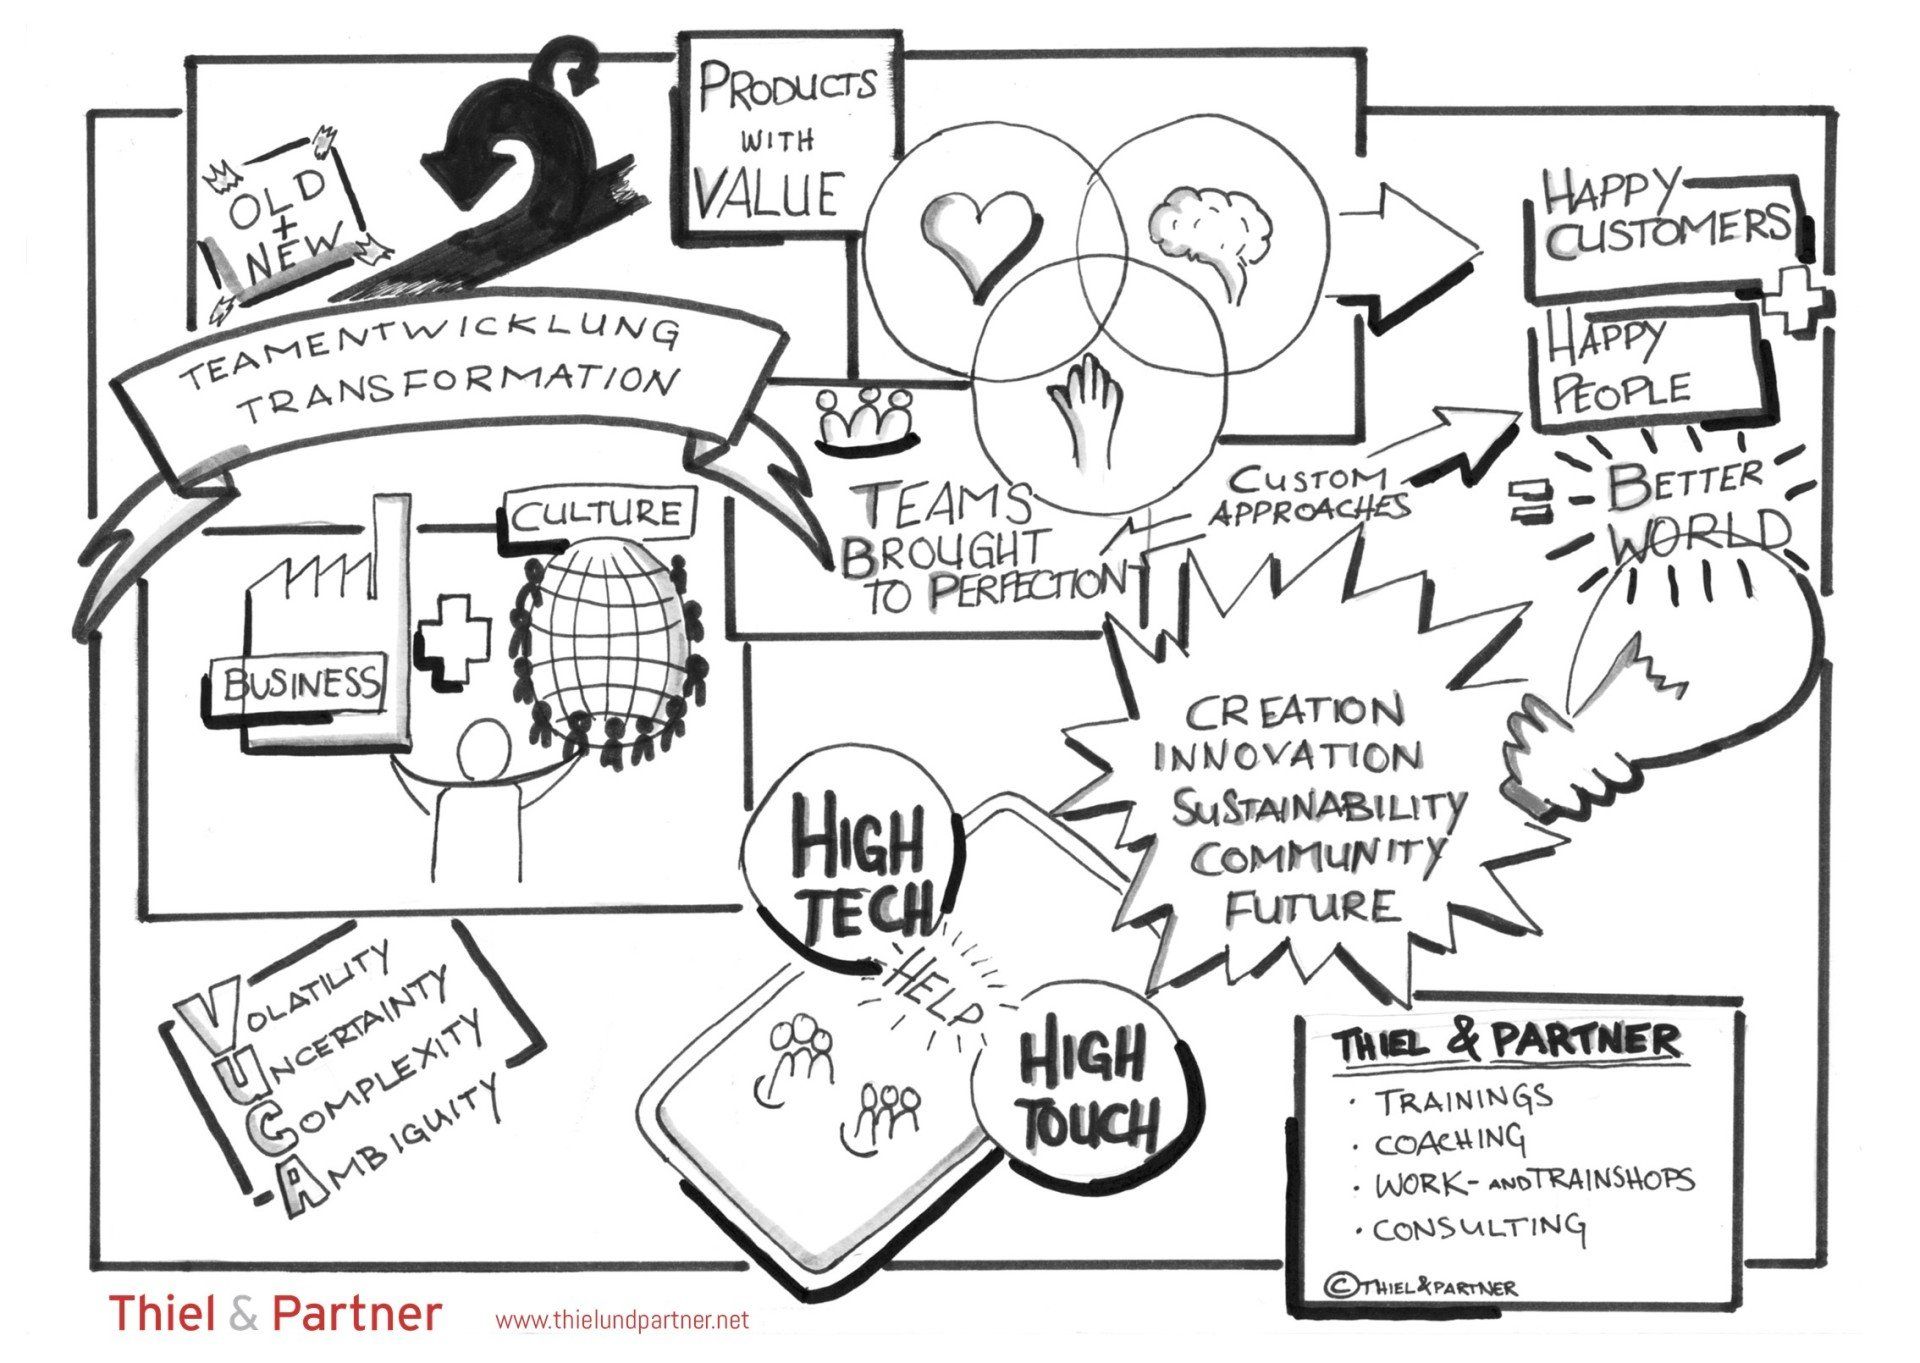 OLD
+
NEW
PRODUCTS
WITH
VALUE
HAPPY
CUSTOMERS
HAPPY
PEOPLE
=
BETTER
WORLD
TEAMENTWICKLUNG
TRANSFORMATION
TEAMS
BROUGHT
TO PERFECTION
CUSTOM
APPROACHES
CULTURE
BUSINESS
CREATION
INNOVATION
SUSTAINABILITY
COMMUNITY
FUTURE
HIGH
TECH
HELP
HIGH
TOUCH
VOLATILITY
UNCERTAINTY
COMPLEXITY
AMBIGUITY
THIEL & PARTNER
· TRAININGS
· COACHING
· WORK- AND TRAINSHOPS
· CONSULTING
© THIEL & PARTNER
Thiel & Partner
www.thielundpartner.net